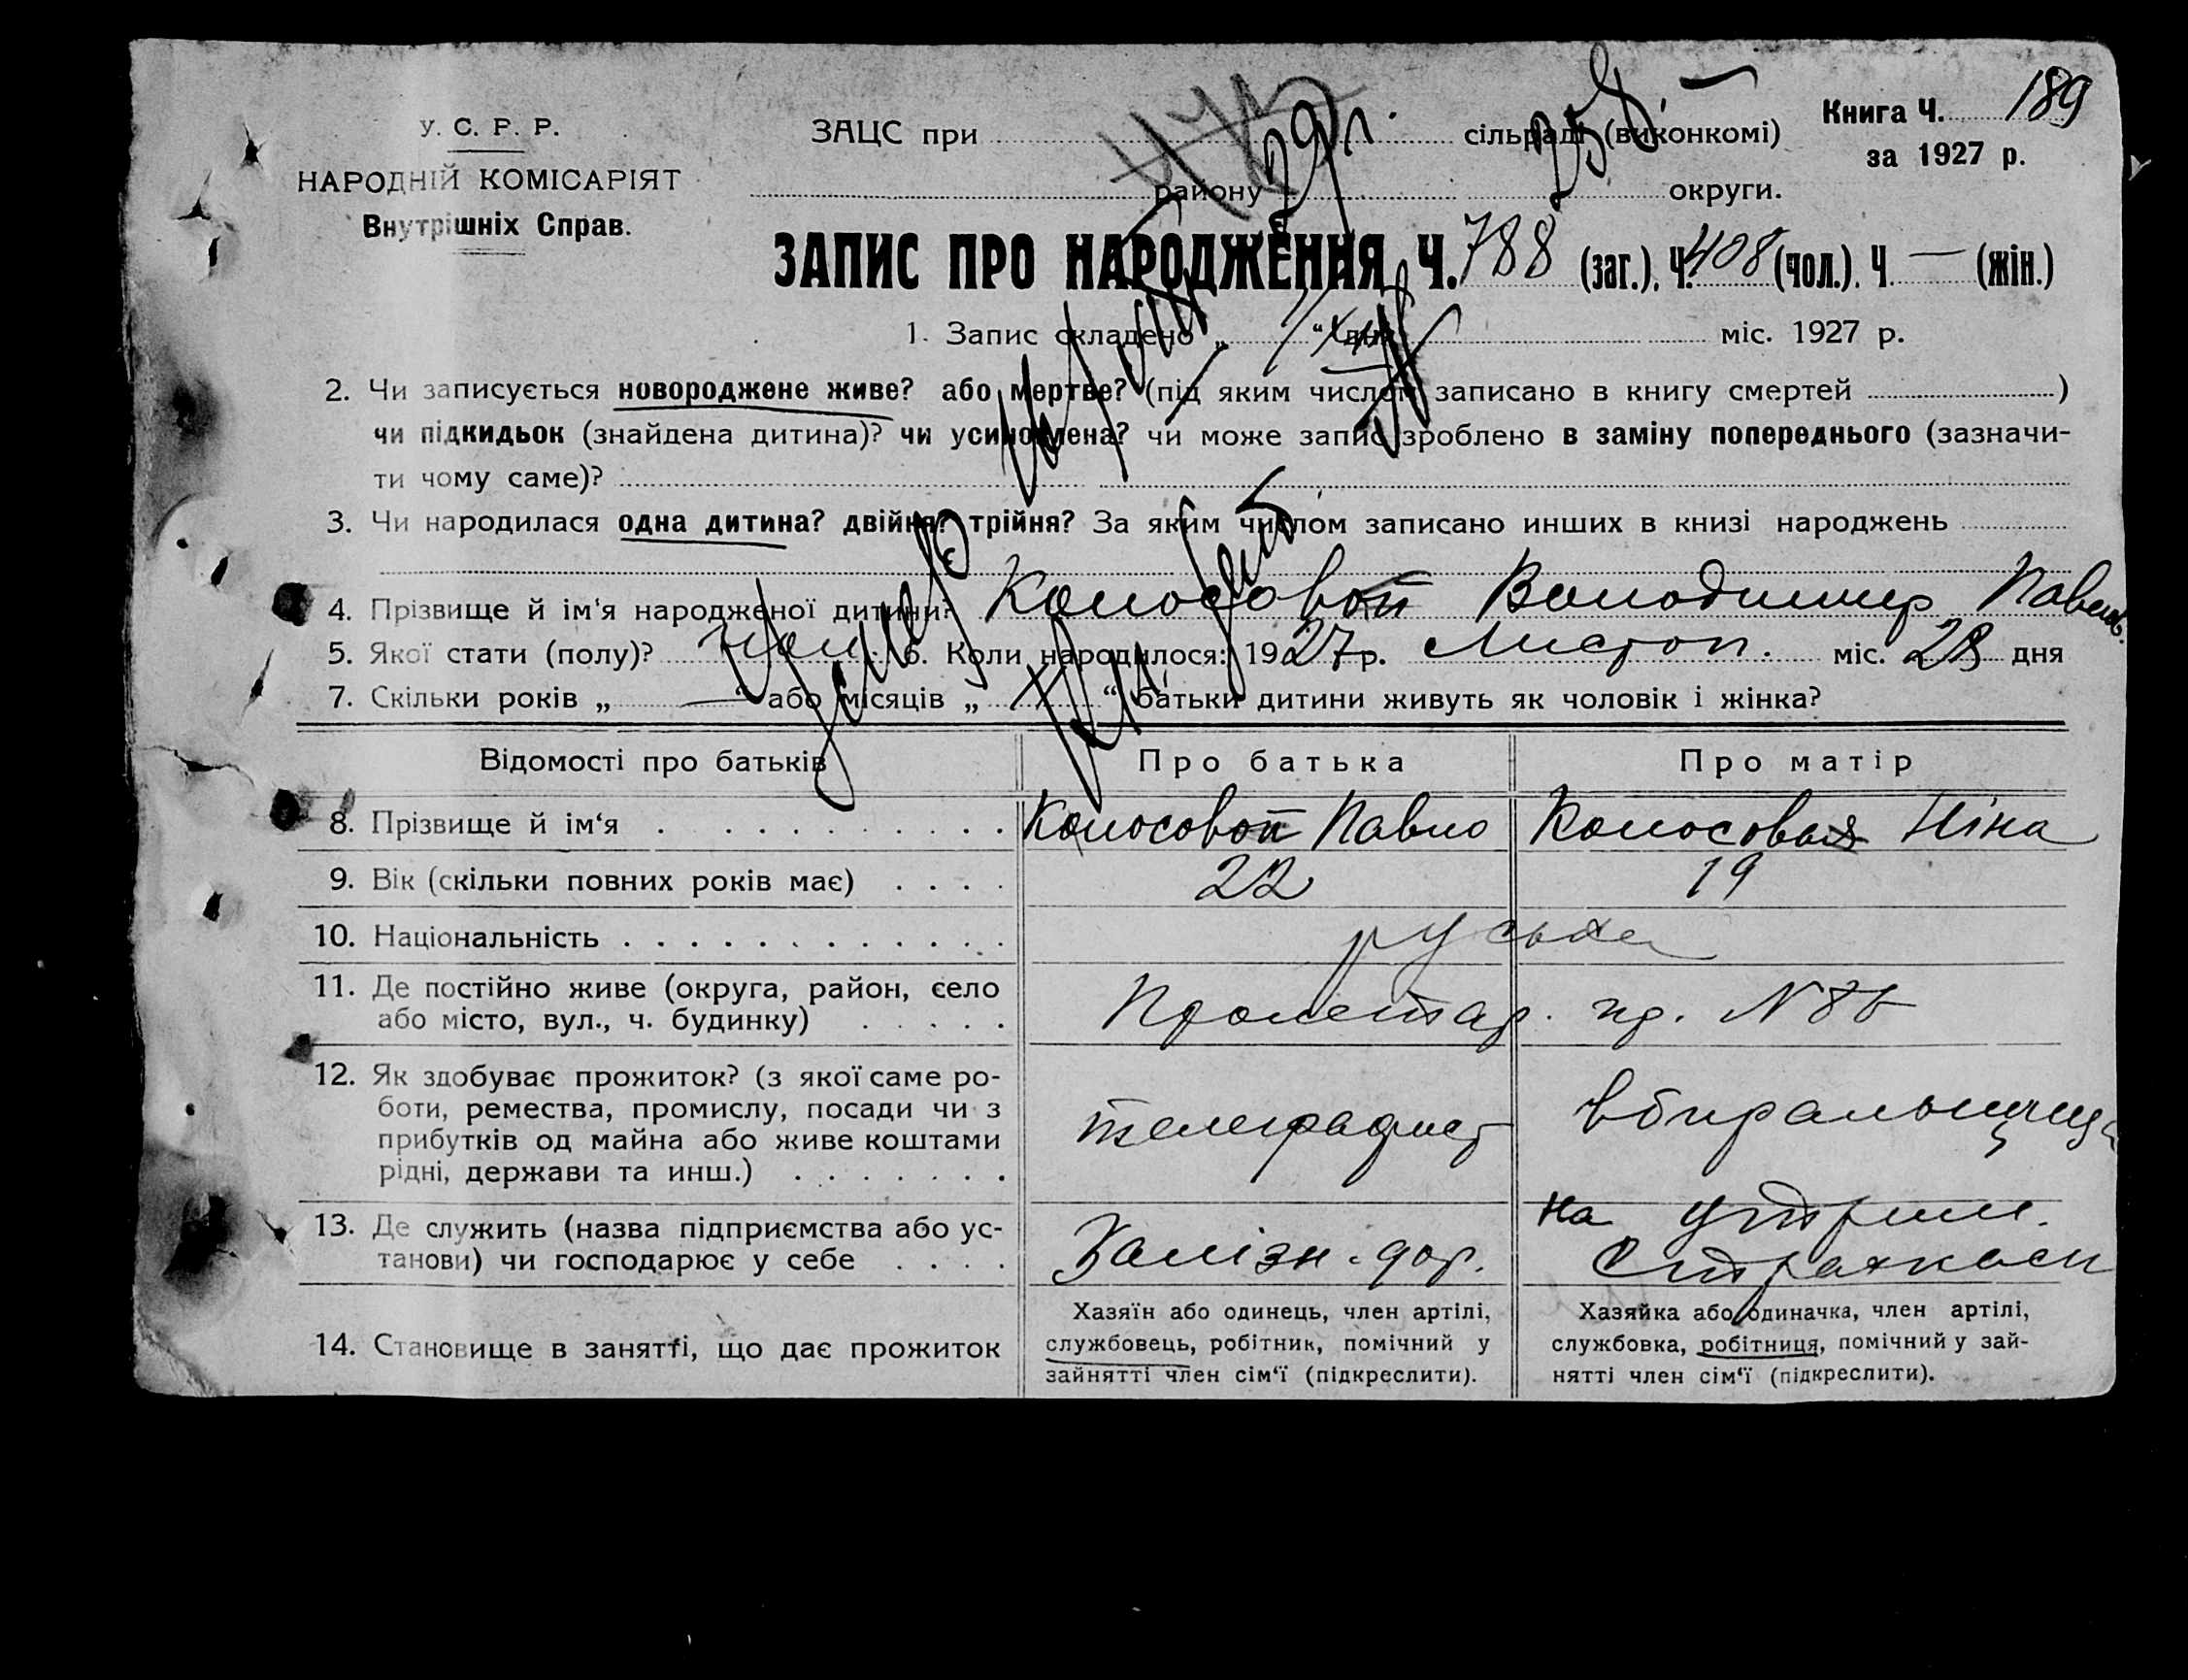 У. С. Р. Р.
НАРОДНІЙ КОМІСАРІЯТ
Внутрішніх Справ.
ЗАЦС при сільраді (виконкомі)
району округи.
Книга Ч. 189
за 1927 р.
ЗАПИС ПРО НАРОДЖЕННЯ Ч. 788 (заг.). Ч. 408 (чол.). Ч. — (жін.)
1. Запис складено „ “ дня міс. 1927 р.
2. Чи записується новороджене живе? або мертве? (під яким числом записано в книгу смертей )
чи підкидьок (знайдена дитина)? чи усиновлена? чи може запис зроблено в заміну попереднього (зазначи-
ти чому саме)?
3. Чи народилася одна дитина? двійня? трійня? За яким числом записано инших в книзі народжень
4. Прізвище й ім‘я народженої дитини? Колосовой Володимир Павлов.
5. Якої стати (полу)? чол. 6. Коли народилося: 1927 р. Листоп. міс. 28 дня
7. Скільки років „ — “ або місяців „ “ батьки дитини живуть як чоловік і жінка?
Відомості про батьків Про батька Про матір
8. Прізвище й ім‘я Колосовой Павло Колосовая Ніна
9. Вік (скільки повних років має) 22 19
10. Національність руська
11. Де постійно живе (округа, район, село
або місто, вул., ч. будинку) Пролетар. №
12. Як здобуває прожиток? (з якої саме ро-
боти, ремества, промислу, посади чи з
прибутків од майна або живе коштами
рідні, держави та инш.) телеграфист вбиральщица
13. Де служить (назва підприємства або ус-
танови) чи господарює у себе Залізн. дор. на утрим. Страхкаси
14. Становище в занятті, що дає прожиток
Хазяїн або одинець, член артілі,
службовець, робітник, помічний у
зайнятті член сім‘ї (підкреслити).
Хазяйка або одиначка, член артілі,
службовка, робітниця, помічний у зай-
нятті член сім‘ї (підкреслити).